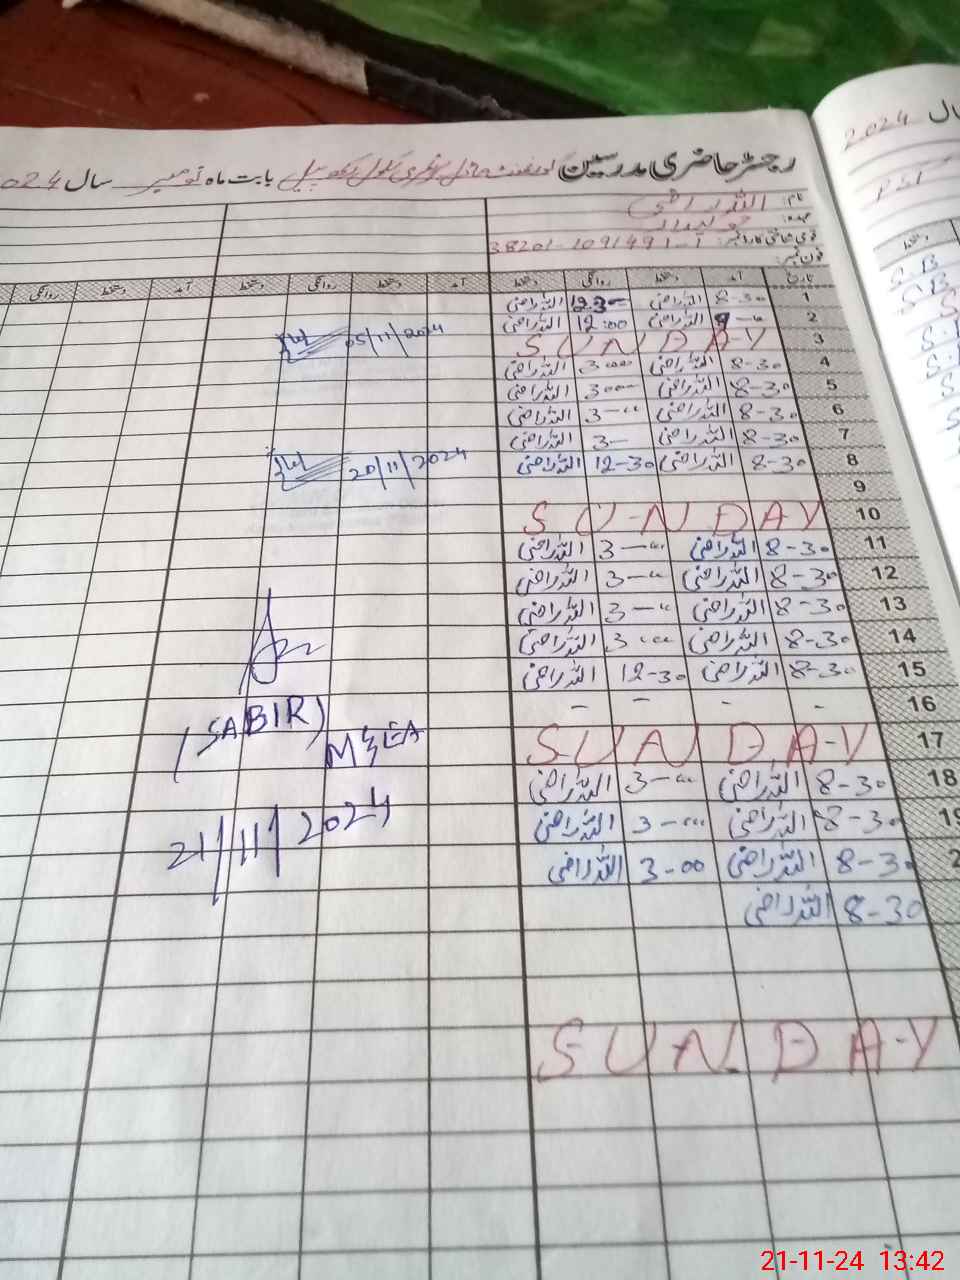 رجسٹر حاضری مدرسین گورنمنٹ ماڈل پرائمری سکول بابت ماہ نومبر سال 2024
نام: اللہ راضی
عہدہ: چوکیدار
قومی شناختی کارڈ نمبر: 38201-1091491-1
فون نمبر:
تاریخ آمد دستخط روانگی دستخط آمد دستخط روانگی دستخط آمد دستخط روانگی
1 8-30 اللہ راضی 12-30 اللہ راضی
2 اللہ راضی 12:00 اللہ راضی
3 SUNDAY
4 8-30 اللہ راضی 3-00 اللہ راضی
5 8-30 اللہ راضی 3-00 اللہ راضی
6 8-30 اللہ راضی 3-00 اللہ راضی
7 8-30 اللہ راضی 3- اللہ راضی
8 8-30 اللہ راضی 12-30 اللہ راضی
9
10 SUNDAY
11 8-30 اللہ راضی 3-00 اللہ راضی
12 8-30 اللہ راضی 3-00 اللہ راضی
13 8-30 اللہ راضی 3-00 اللہ راضی
14 8-30 اللہ راضی 3-00 اللہ راضی
15 8-30 اللہ راضی 12-30 اللہ راضی
16 - - - -
17 SUNDAY
18 8-30 اللہ راضی 3-00 اللہ راضی
19 8-30 اللہ راضی 3-00 اللہ راضی
2 8-30 اللہ راضی 3-00 اللہ راضی
8-30 اللہ راضی
SUNDAY
05/11/2024
20/11/2024
(SABIR)
MEA
21/11/2024
سال 2024
PST
دستخط
S.B
S.B
21-11-24 13:42